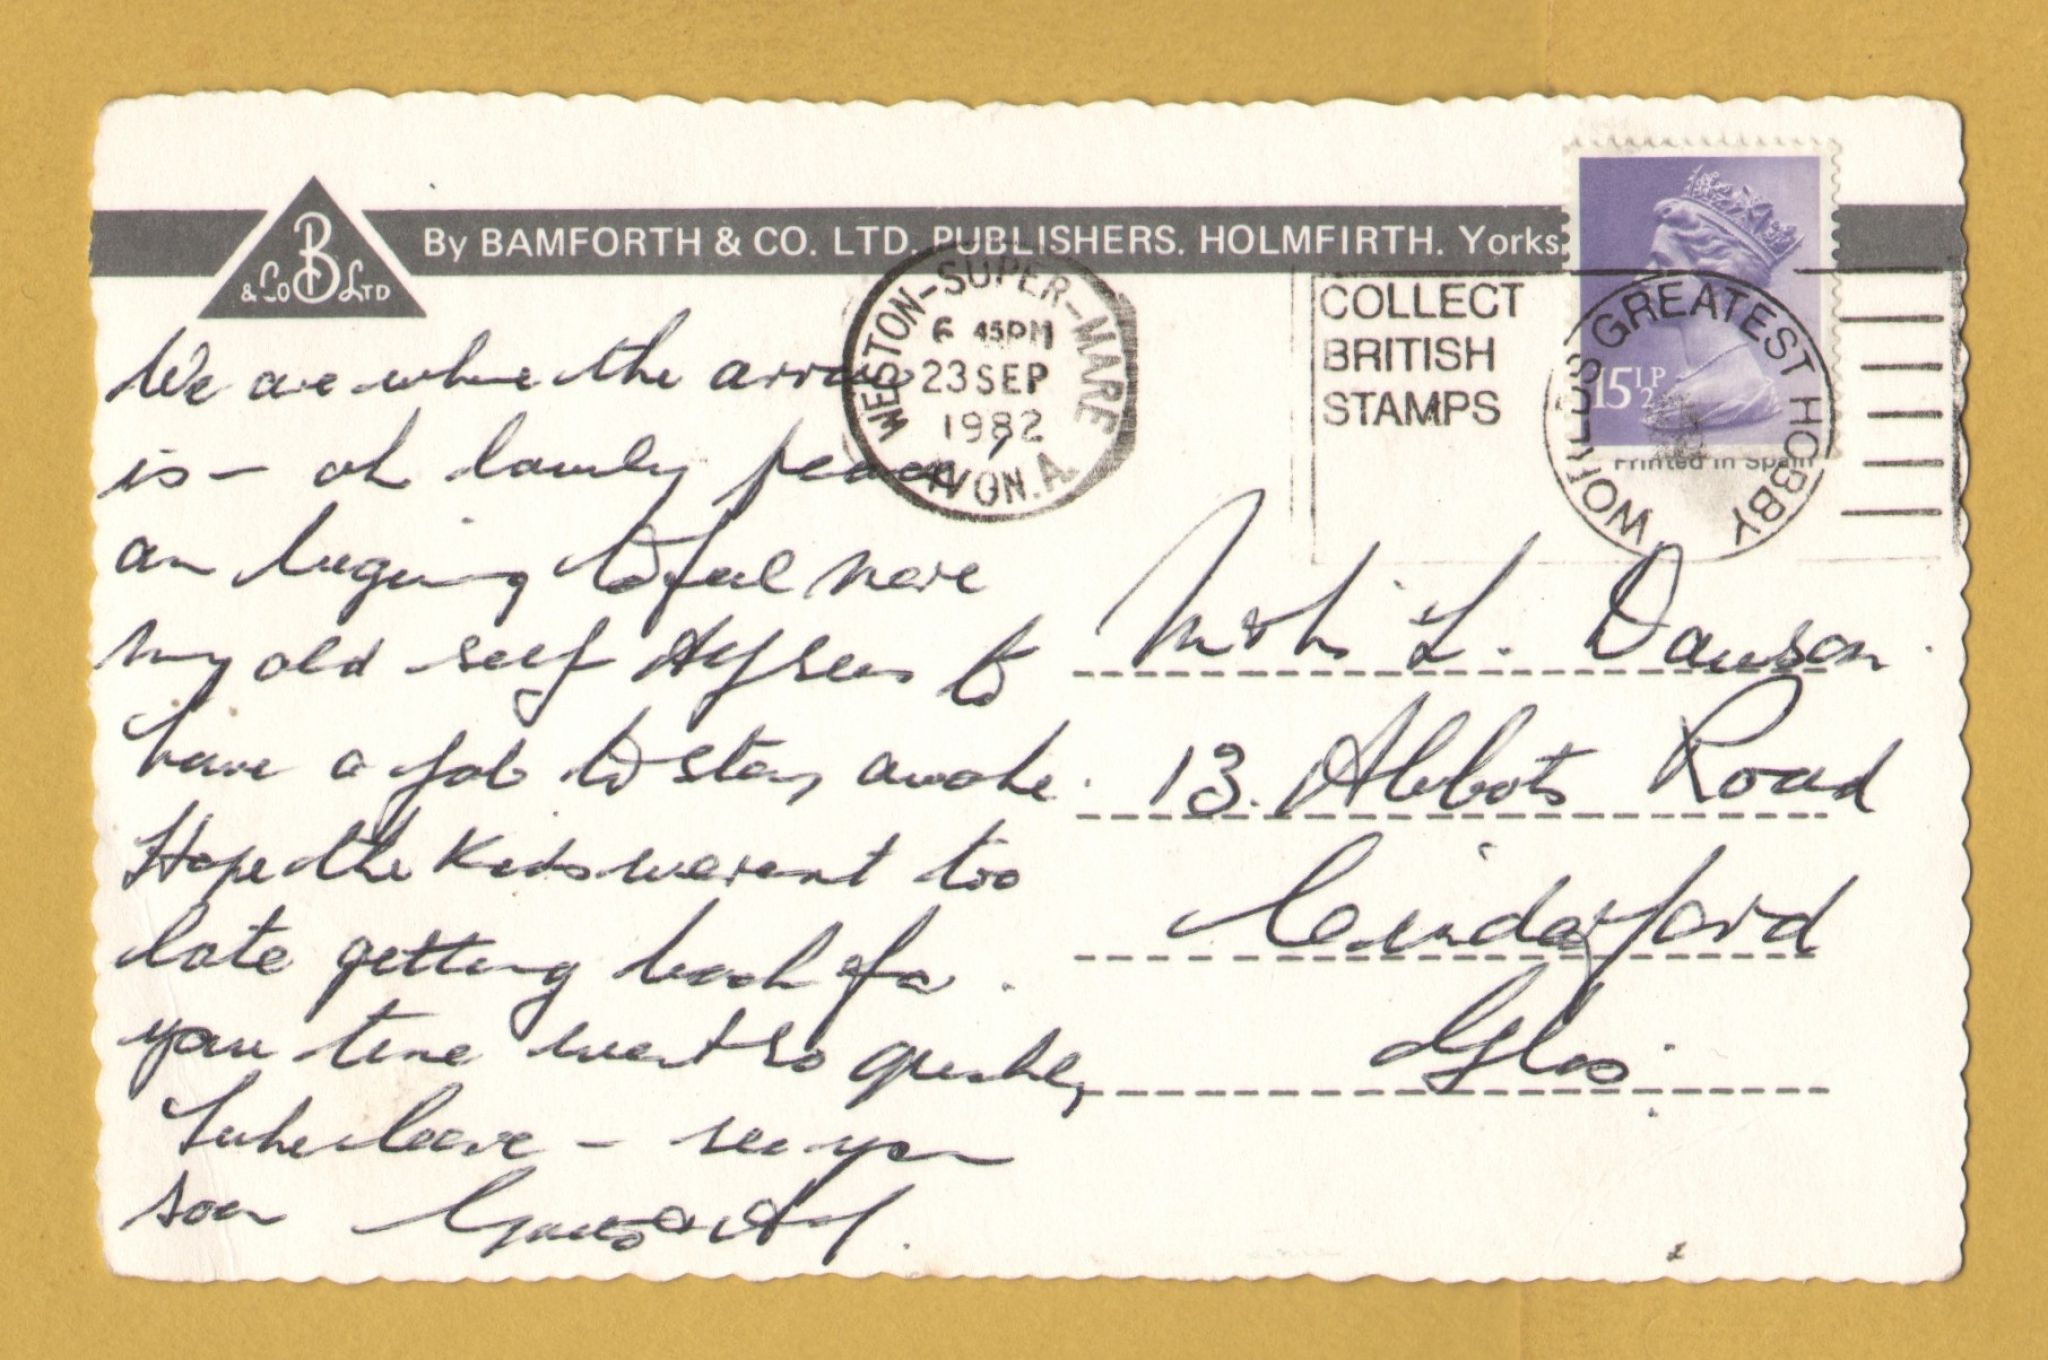 By BAMFORTH & CO. LTD. PUBLISHERS. HOLMFIRTH. Yorks
B
& Co Ltd
WESTON-SUPER-MARE
6 45PM
23 SEP
1982
AVON. A
COLLECT
BRITISH
STAMPS
WORLDS GREATEST HOBBY
15½P
Printed in Spain
We are where the arrow
is - oh lovely peace,
am begining to feel more
my old self Alf seems to
have a job to stay awake.
Hope the kids werent too
late getting back for
you time went so quickly
Take care - see you
soon & Alf.
Mr & Mrs L. Dawson.
13. Abbots Road
Cinderford
Glos.